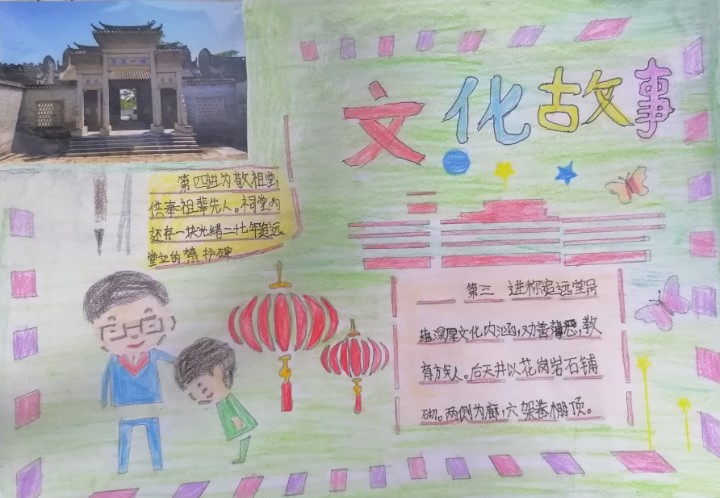 文化故事
第四进为敬祖堂,
供奉祖辈先人。祠堂内
还存一块光绪二十七年追远
堂立的禁护碑
第三 进称追远堂
蕴深厚文化内涵,劝善,教
有方人。后天井以花岗岩石铺
砌。两侧为廊,六架卷棚顶。